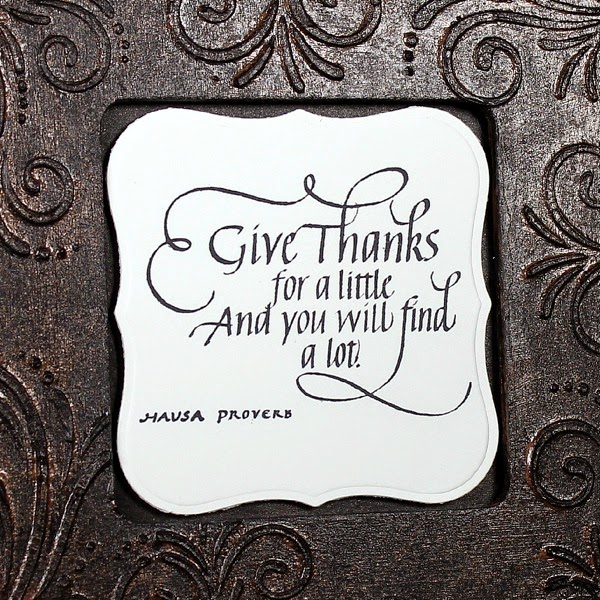 Give Thanks
for a little
And you will find
a lot!
HAUSA PROVERB